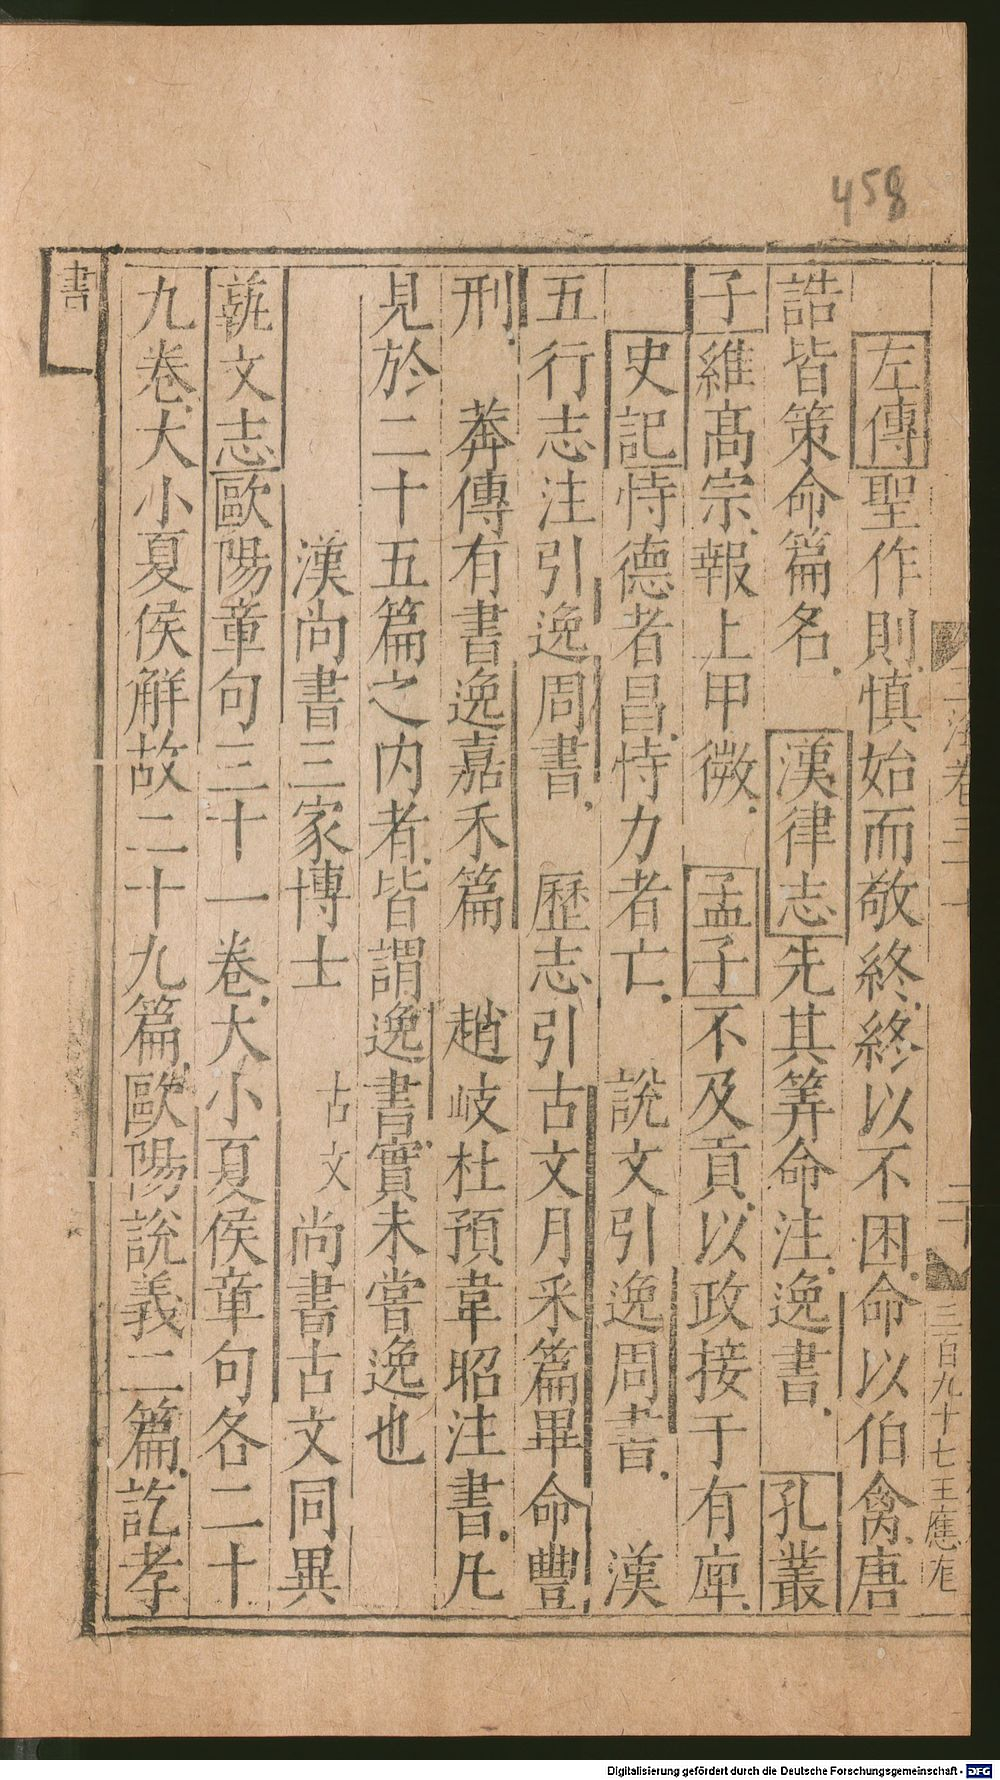 458
玉海卷三十
二十
三百九十七王應
左傳聖作則慎始而敬終終以不困命以伯禽唐
誥皆策命篇名 漢律志先其筭命注逸書 孔叢
子維髙宗報上甲微 孟子不及貢以政接于有庳
史記恃德者昌恃力者亡 說文引逸周書 漢
五行志注引逸周書 歷志引古文月采篇畢命豐
刑 莽傳有書逸嘉禾篇 趙岐杜預韋昭注書凡
見於二十五篇之内者皆謂逸書實未嘗逸也
漢尚書三家博士 古文尚書古文同異
蓺文志歐陽章句三十一卷大小夏侯章句各二十
九卷大小夏侯解故二十九篇歐陽說義二篇訖孝
書
Digitalisierung gefördert durch die Deutsche Forschungsgemeinschaft - DFG